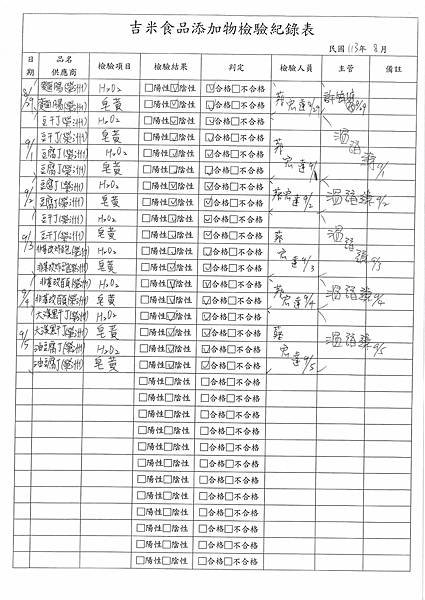 吉米食品添加物檢驗紀錄表
民國 113年 8月
日期 品名 供應商 檢驗項目 檢驗結果 判定 檢驗人員 主管 備註
8/29 麵腸(榮洲) H2O2 □陽性☑陰性 ☑合格□不合格
麵腸(榮洲) 皂黃 □陽性☑陰性 ☑合格□不合格
豆干J(榮洲) H2O2 □陽性☑陰性 ☑合格□不合格
豆干J(榮洲) 皂黃 □陽性☑陰性 ☑合格□不合格
9/1 豆腐J(榮洲) H2O2 □陽性☑陰性 ☑合格□不合格
豆腐J(榮洲) 皂黃 □陽性☑陰性 ☑合格□不合格
豆腐J(榮洲) H2O2 □陽性☑陰性 ☑合格□不合格
9/2 豆腐J(榮洲) 皂黃 □陽性☑陰性 ☑合格□不合格 宏達9/2 9/2
豆干J(榮洲) H2O2 □陽性☑陰性 ☑合格□不合格
豆干J(榮洲) 皂黃 □陽性☑陰性 ☑合格□不合格
9/3 (榮洲) H2O2 □陽性☑陰性 ☑合格□不合格 宏達9/3 9/3
(榮洲) 皂黃 □陽性☑陰性 ☑合格□不合格
(榮洲) H2O2 □陽性☑陰性 ☑合格□不合格
9/4 (榮洲) 皂黃 □陽性☑陰性 ☑合格□不合格 宏達9/4 9/4
大溪黑干J(榮洲) H2O2 □陽性☑陰性 ☑合格□不合格
大溪黑干J(榮洲) 皂黃 □陽性☑陰性 ☑合格□不合格
9/5 油豆腐J(榮洲) H2O2 □陽性☑陰性 ☑合格□不合格 宏達9/5 9/5
油豆腐J(榮洲) 皂黃 □陽性☑陰性 ☑合格□不合格
□陽性□陰性 □合格□不合格
□陽性□陰性 □合格□不合格
□陽性□陰性 □合格□不合格
□陽性□陰性 □合格□不合格
□陽性□陰性 □合格□不合格
□陽性□陰性 □合格□不合格
□陽性□陰性 □合格□不合格
□陽性□陰性 □合格□不合格
□陽性□陰性 □合格□不合格
□陽性□陰性 □合格□不合格
□陽性□陰性 □合格□不合格
□陽性□陰性 □合格□不合格